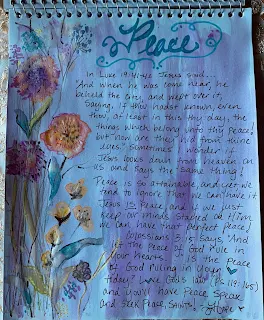 Peace
In Luke 19:41-42 Jesus said,
"And when he was come near, he
beheld the city, and wept over it,
Saying, If thou hadst known, even
thou, at least in this thy day, the
things which belong unto thy peace!
but now are they hid from thine
eyes." Sometimes I wonder if
Jesus looks down from heaven on
us and says the same thing!
Peace is so attainable, and yet we
tend to ignore that we can have it
Jesus is Peace, and if we just
keep our minds stayed on Him,
we can have that perfect peace!
Colossians 3:15 says, "And
let the peace of God rule in
your hearts." Is the peace
of God ruling in your
today? Love God's law (Ps. 119:165)
and you'll have peace. Speak
and seek Peace, Saints.